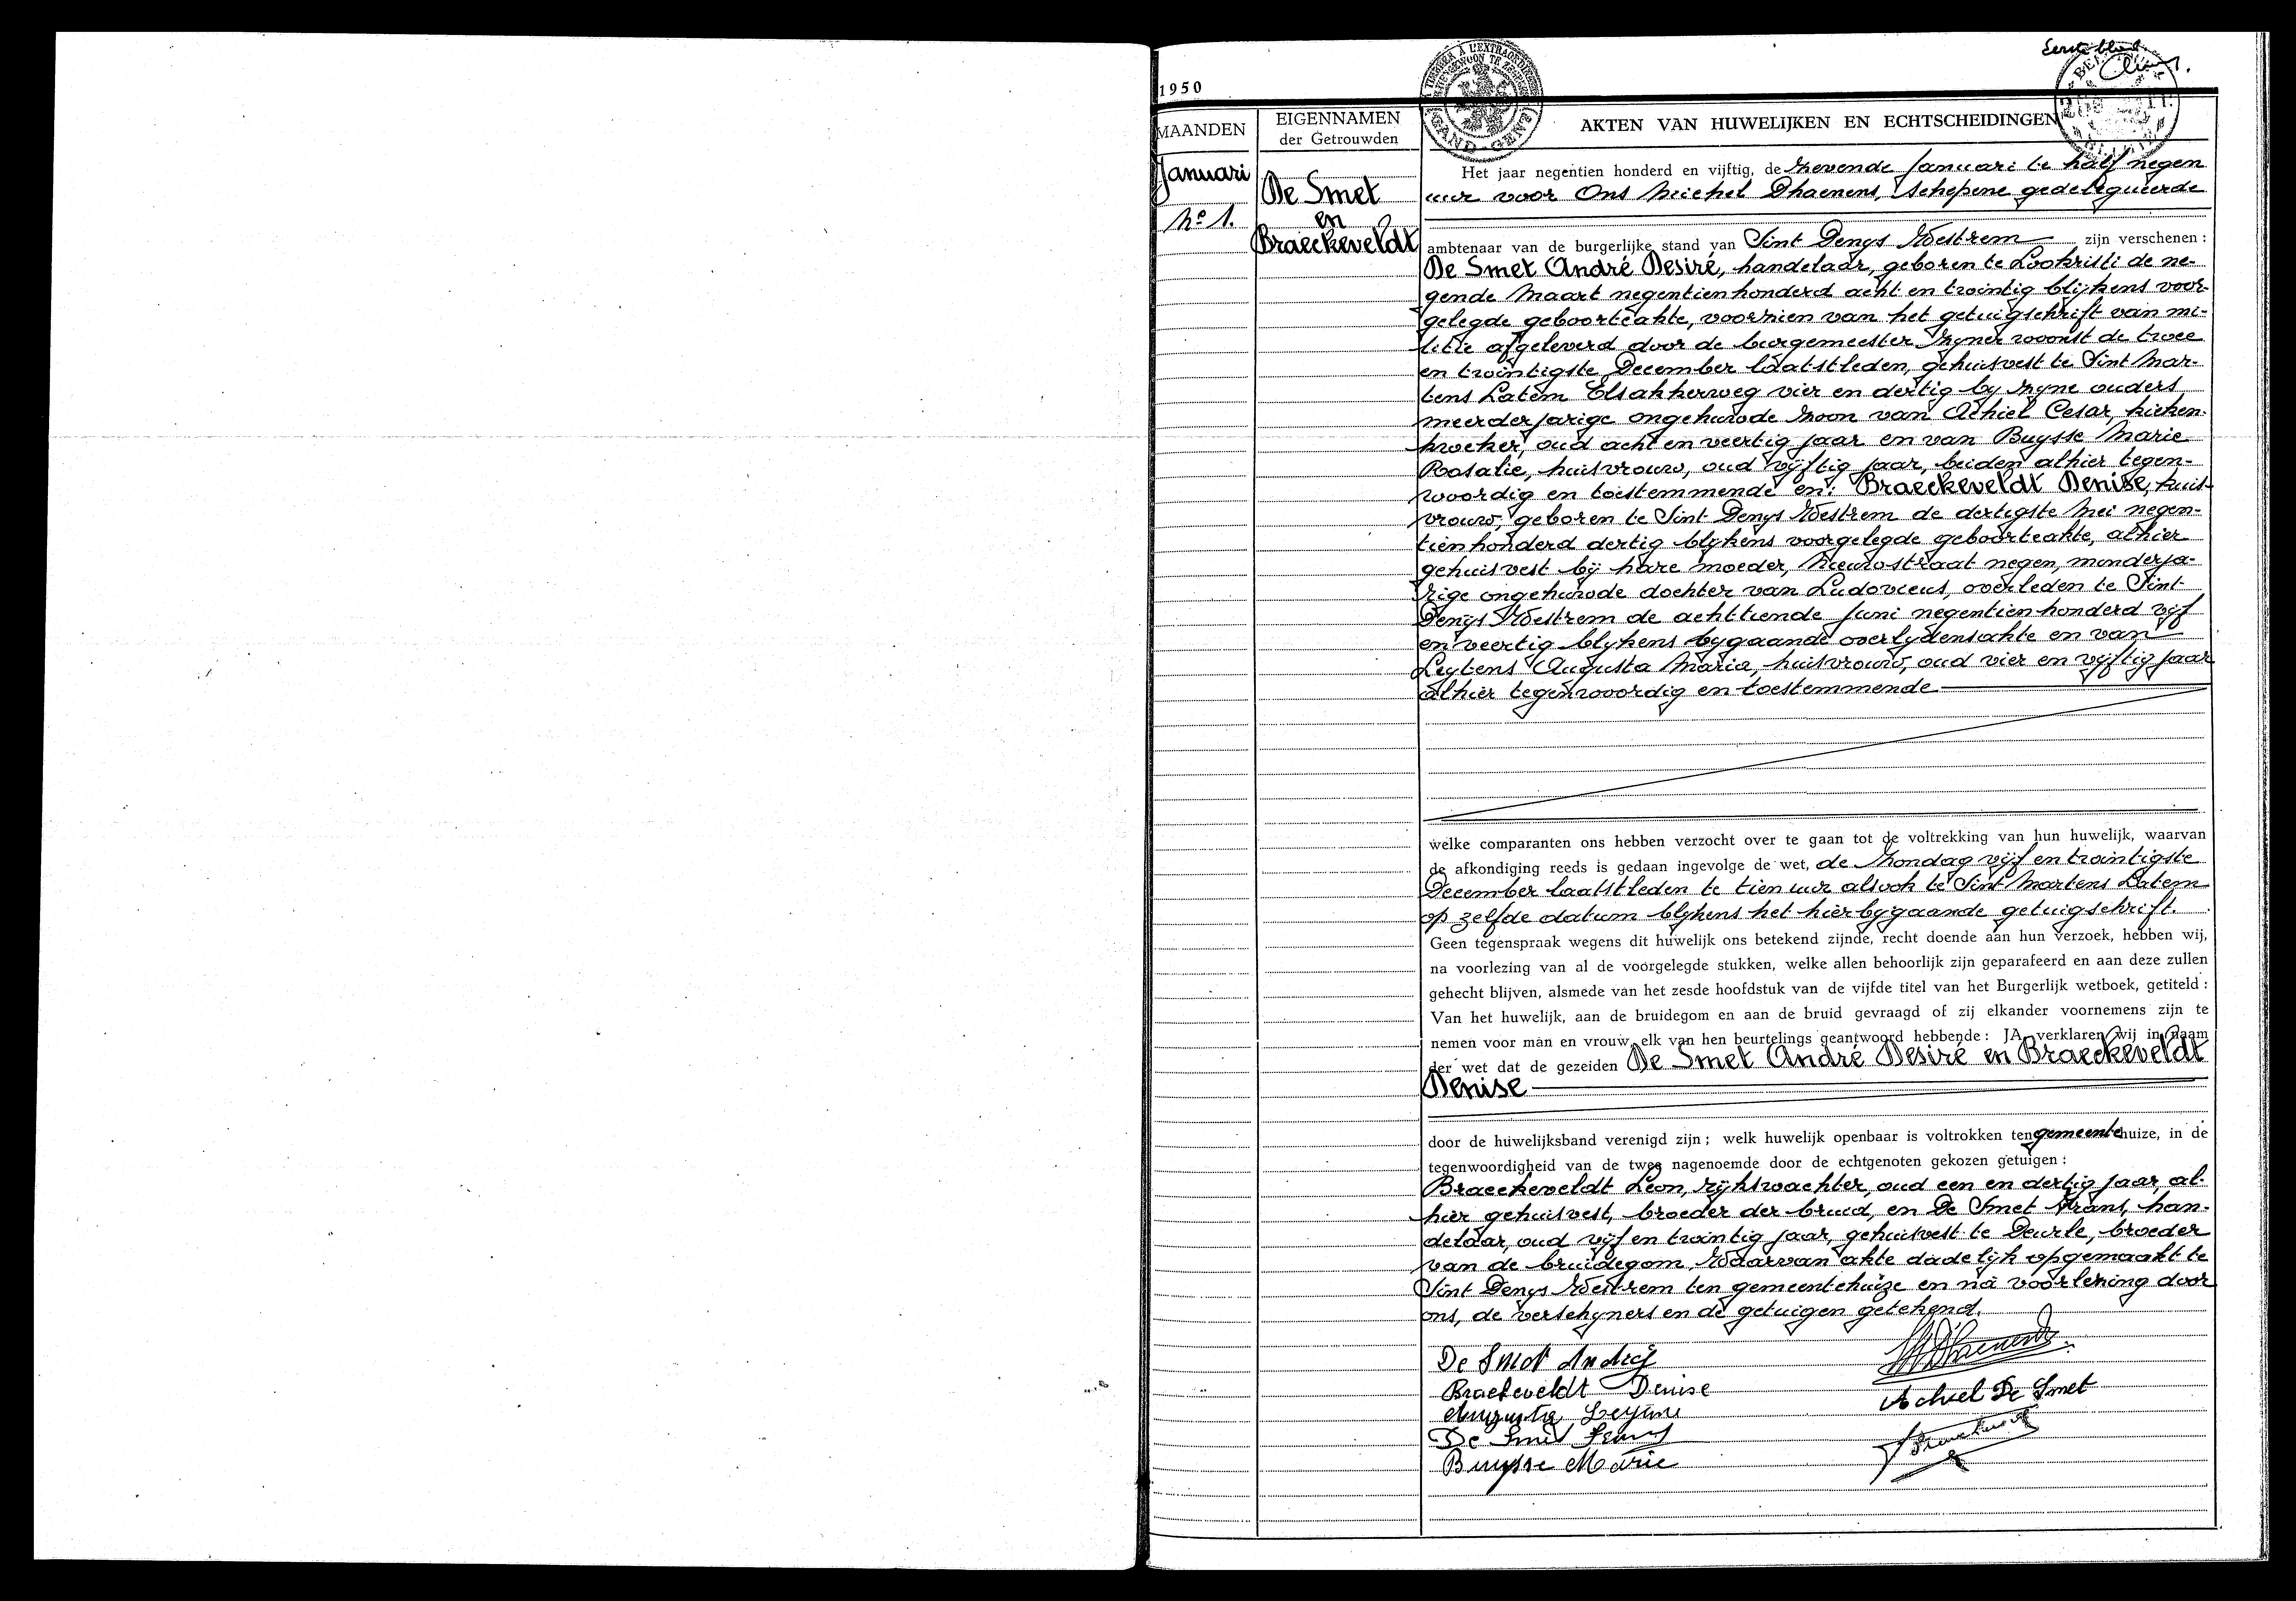 Eerste blad
1950
MAANDEN
EIGENNAMEN
der Getrouwden
AKTEN VAN HUWELIJKEN EN ECHTSCHEIDINGEN
Januari
No 1.
De Smet
en
Braeckeveldt
Het jaar negentien honderd en vijftig, de zevende Januari te half negen
uur voor Ons Michel Dhaenens, Schepene gedelegueerde
ambtenaar van de burgerlijke stand van Sint Denys Westrem zijn verschenen :
De Smet André Desiré, handelaar, geboren te Lochristi de ne-
gende Maart negentienhonderd acht en twintig blijkens voor-
gelegde geboorteakte, voorzien van het getuigschrift van mi-
litie afgeleverd door de burgemeester zyner woonst de twee
en twintigste December laatstleden, gehuisvest te Sint Mar-
tens Latem Elsakkerweg vier en dertig by zyne ouders
meerderjarige ongehuwde zoon van Achiel Cesar, kieken-
kweeker, oud acht en veertig jaar en van Buysse Marie
Rosalie, huisvrouw, oud vijftig jaar, beiden alhier tegen-
woordig en toestemmende en: Braeckeveldt Denise, huis-
vrouw, geboren te Sint Denys Westrem de dertigste Mei negen-
tienhonderd dertig blykens voorgelegde geboorteakte, alhier
gehuisvest bij hare moeder, Nieuwstraat negen, minderja-
rige ongehuwde dochter van Ludovicus, overleden te Sint
Denys Westrem de achttiende Juni negentienhonderd vijf
en veertig blykens bygaande overlydensakte en van
Leytens Augusta Maria, huisvrouw, oud vier en vyftig jaar
alhier tegenwoordig en toestemmende
welke comparanten ons hebben verzocht over te gaan tot de voltrekking van hun huwelijk, waarvan
de afkondiging reeds is gedaan ingevolge de wet, de Zondag vijf en twintigste
December laatstleden te tien uur alsook te Sint Martens Latem
op zelfde datum blykens het hierbygaande getuigschrift.
Geen tegenspraak wegens dit huwelijk ons betekend zijnde, recht doende aan hun verzoek, hebben wij,
na voorlezing van al de voorgelegde stukken, welke allen behoorlijk zijn geparafeerd en aan deze zullen
gehecht blijven, alsmede van het zesde hoofdstuk van de vijfde titel van het Burgerlijk wetboek, getiteld :
Van het huwelijk, aan de bruidegom en aan de bruid gevraagd of zij elkander voornemens zijn te
nemen voor man en vrouw, elk van hen beurtelings geantwoord hebbende : JA, verklaren wij in naam
der wet dat de gezeiden De Smet André Desiré en Braeckeveldt
Denise
door de huwelijksband verenigd zijn ; welk huwelijk openbaar is voltrokken ten gemeentehuize, in de
tegenwoordigheid van de twee nagenoemde door de echtgenoten gekozen getuigen :
Braeckeveldt Leon, rijkswachter, oud een en dertig jaar, al-
hier gehuisvest, broeder der bruid, en De Smet Frans, han-
delaar, oud vijf en twintig jaar, gehuisvest te Deurle, broeder
van de bruidegom. Waarvan akte dadelijk opgemaakt te
Sint Denys Westrem ten gemeentehuize en na voorlezing door
ons, de verschyners en de getuigen getekend.
De Smet André
Braeckeveldt Denise
Achiel De Smet
Augusta
De Smet Frans
Buysse Marie